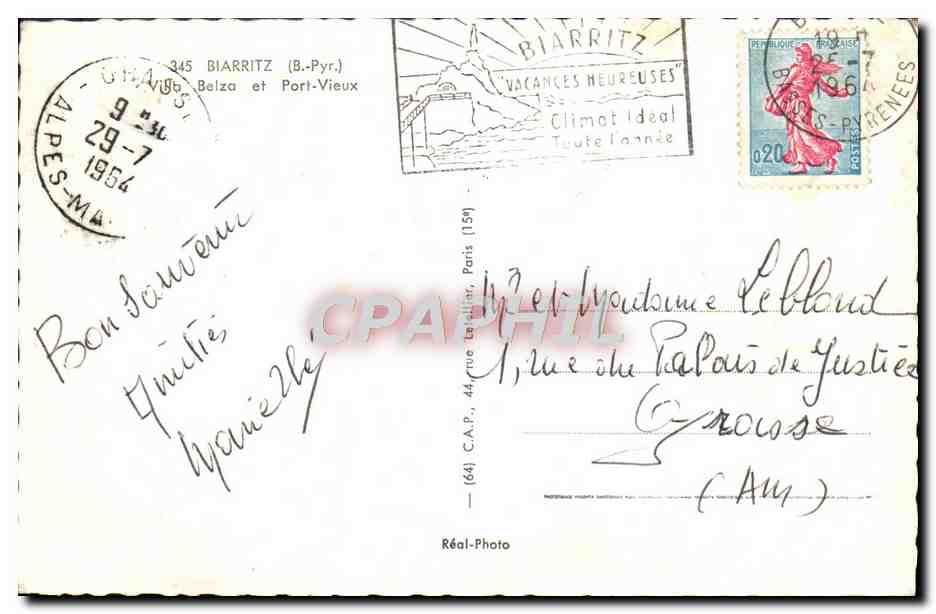 345 BIARRITZ (B.-Pyr.)
Villa Belza et Port-Vieux
9
29-7
1964
ALPES-MA
BIARRITZ
"VACANCES HEUREUSES"
Climat Idéal
Toute l'année
RÉPUBLIQUE FRANÇAISE
0,20
POSTES
1964
BASSES-PYRENEES
Bon Souvenir
Amitiés
(64) C.A.P., 44, rue Letellier, Paris (15e)
CPAPHIL
Mr et Madame Leblond
1, rue du Palais de Justice
Grasse
(AM)
Réal-Photo